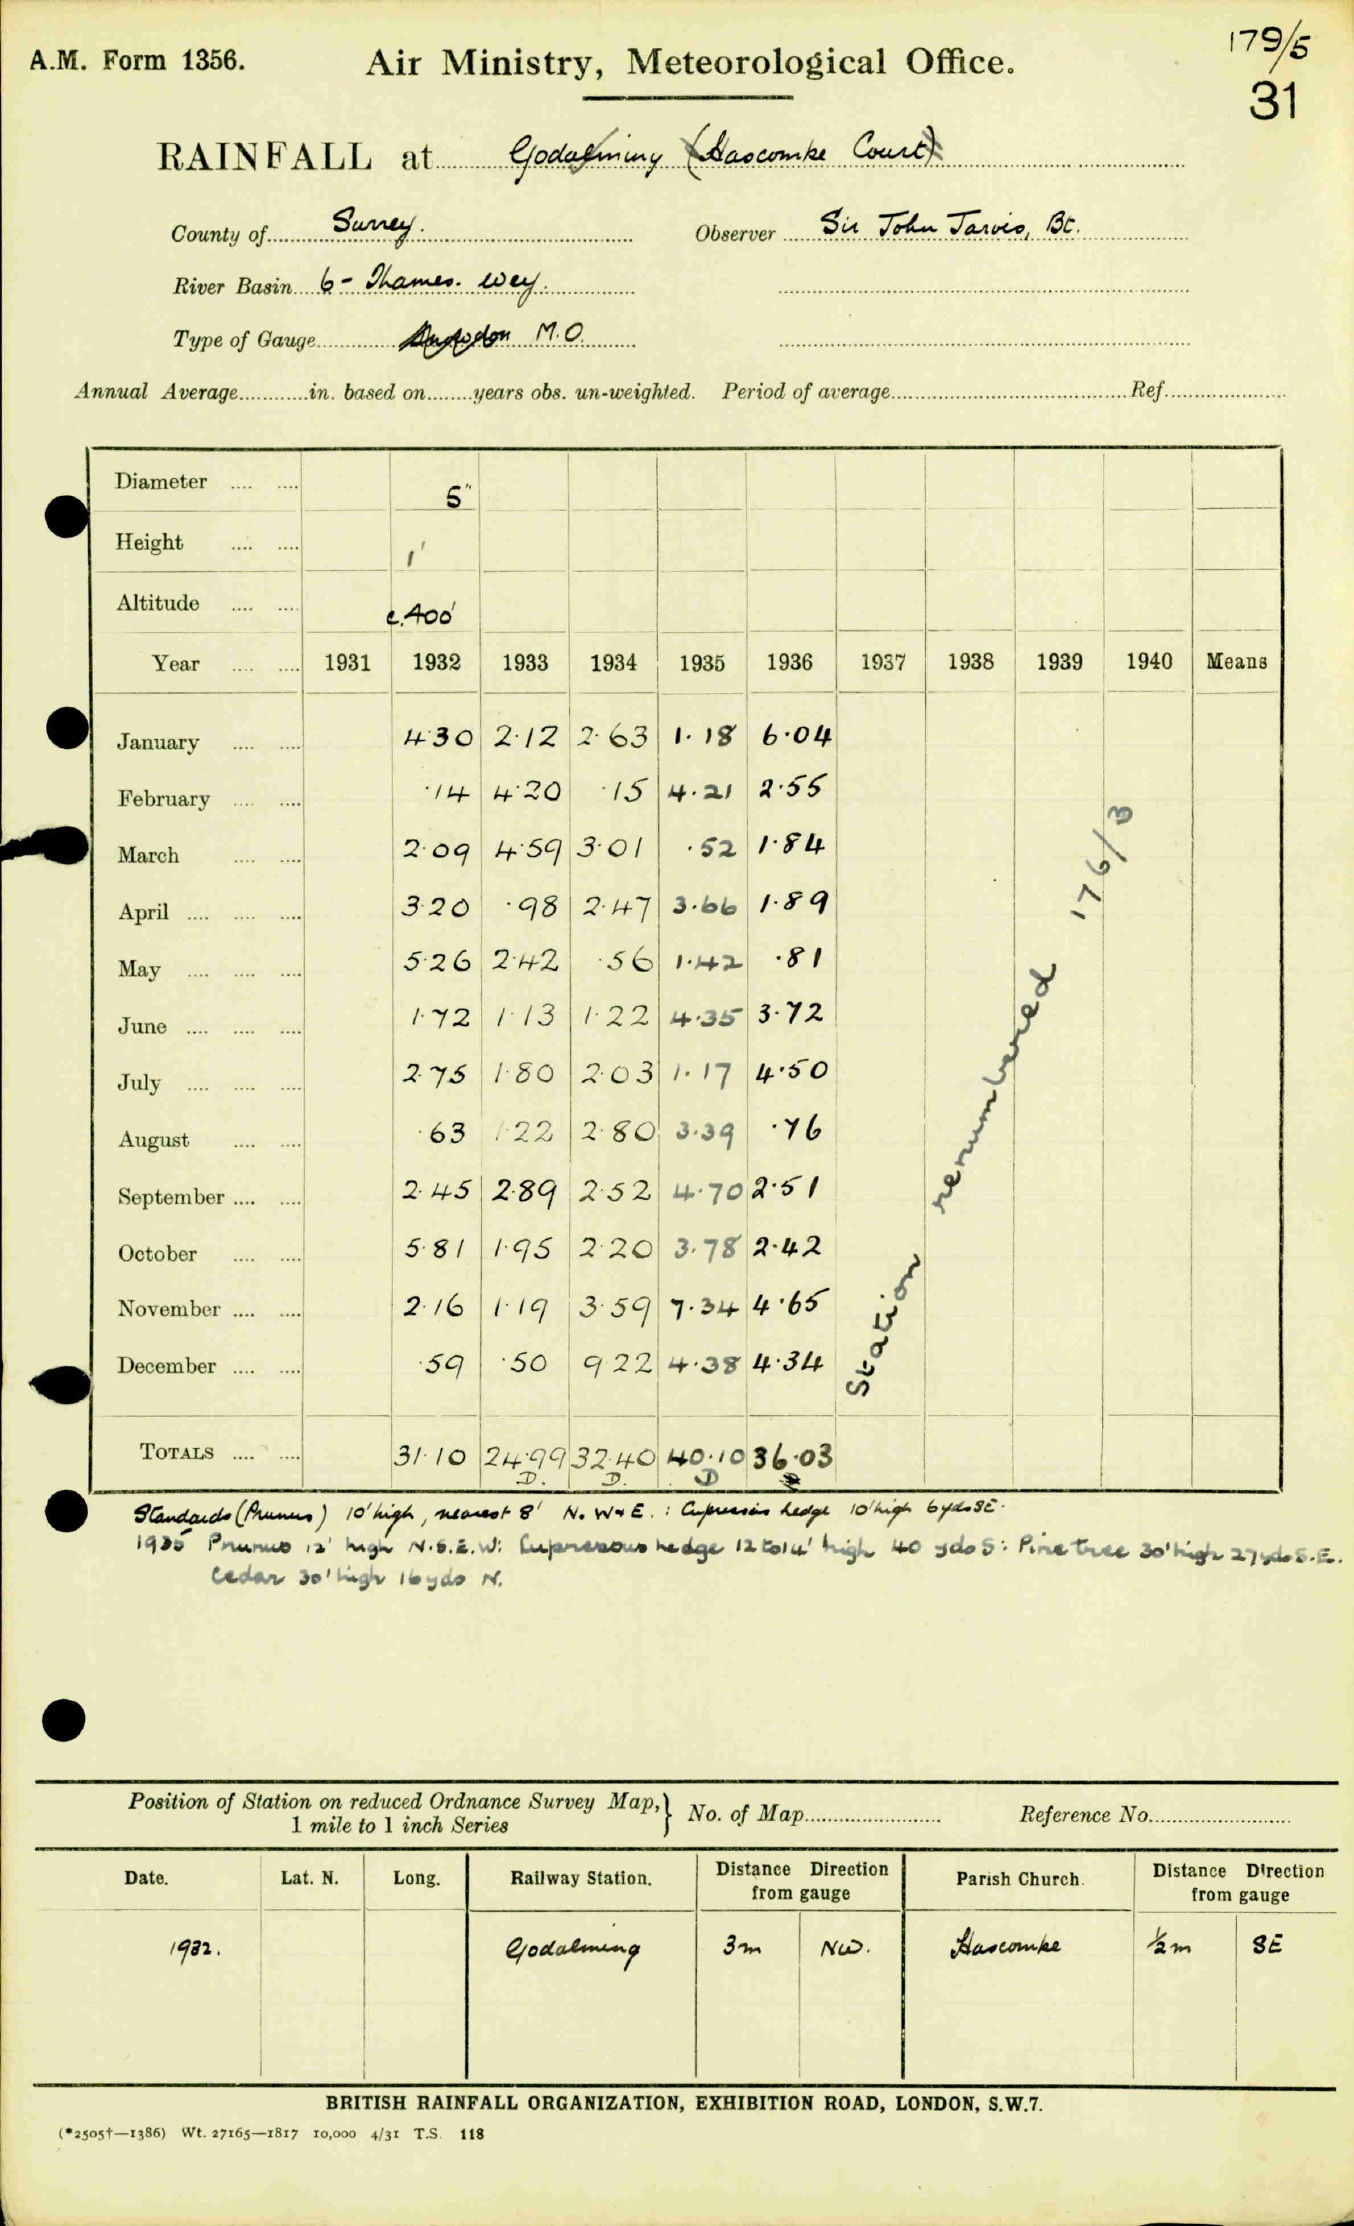 A.M. Form 1356.
Air Ministry, Meteorological Office.
179/5
31
RAINFALL at Godalming (Hascombe Court)
County of Surrey. Observer Sir John Jarvis, Bt.
River Basin 6 - Thames. Wey.
Type of Gauge M.O.
Annual Average............in. based on........years obs. un-weighted. Period of average........................Ref.................
Diameter .... .... 5"
Height .... .... 1'
Altitude .... .... c.400'
Year .... .... 1931 1932 1933 1934 1935 1936 1937 1938 1939 1940 Means
January .... .... 4·30 2·12 2·63 1·18 6·04
February .... .... ·14 4·20 ·15 4·21 2·55
March .... .... 2·09 4·59 3·01 ·52 1·84
April .... .... .... 3·20 ·98 2·47 3·66 1·89
May .... .... .... 5·26 2·42 ·56 1·42 ·81
June .... .... .... 1·72 1·13 1·22 4·35 3·72
July .... .... .... 2·75 1·80 2·03 1·17 4·50
August .... .... ·63 1·22 2·80 3·39 ·76
September .... .... 2·45 2·89 2·52 4·70 2·51
October .... .... 5·81 1·95 2·20 3·78 2·42
November .... .... 2·16 1·19 3·59 7·34 4·65
December .... .... ·59 ·50 9·22 4·38 4·34
Station renumbered 176/3
TOTALS .... .... 31·10 24·99 32·40 40·10 36·03
D. D. D
Standards (Prunus) 10' high, nearest 8' N. W & E. : Cupressus hedge 10' high 6 yds SE.
1935 Prunus 12' high N.S.E.W: Cupressus hedge 12 to 14' high 40 yds S: Pine tree 30' high 27 yds S.E.
Cedar 30' high 16 yds N.
Position of Station on reduced Ordnance Survey Map,} No. of Map........................ Reference No.........................
1 mile to 1 inch Series
Date. Lat. N. Long. Railway Station. Distance Direction from gauge Parish Church. Distance Direction from gauge
1932. Godalming 3m NW. Hascombe ½m SE
BRITISH RAINFALL ORGANIZATION, EXHIBITION ROAD, LONDON, S.W.7.
(*2505†—1386) Wt. 27165—1817 10,000 4/31 T.S. 118